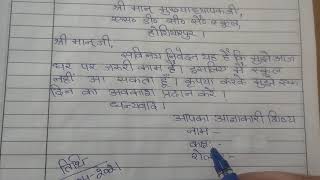 श्री मान् मुख्याध्यापकजी,
एस० डी० सी० सै० स्कूल,
होशियारपुर।
श्री मान्जी,
सविनय निवेदन यह है कि मुझे आज
घर पर जरूरी काम है। इसलिए मैं स्कूल
नहीं आ सकता हूँ। कृपया करके मुझे एक
दिन का अवकाश प्रदान करें।
धन्यवाद।
आपका आज्ञाकारी शिष्य
नाम -
कक्षा -
तिथि